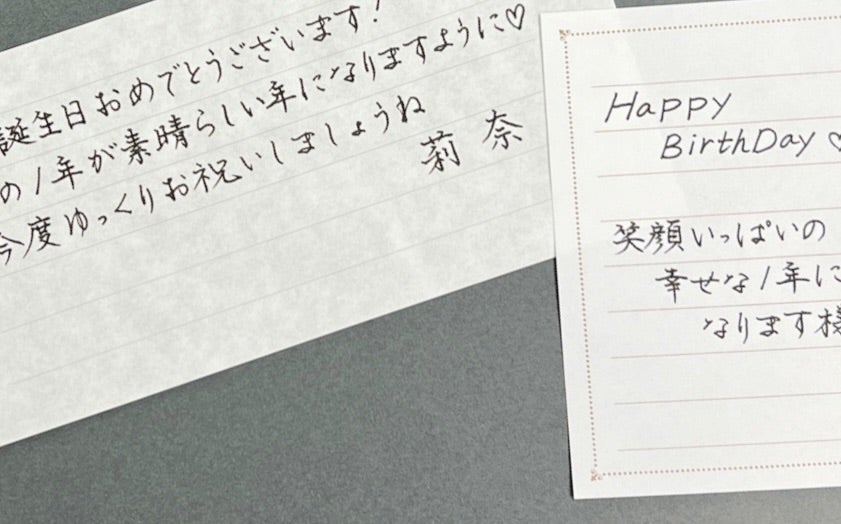 誕生日おめでとうございます!
の1年が素晴らしい年になりますように♡
今度ゆっくりお祝いしましょうね
莉奈
Happy
BirthDay ♡
笑顔いっぱいの
幸せな1年に
なります様